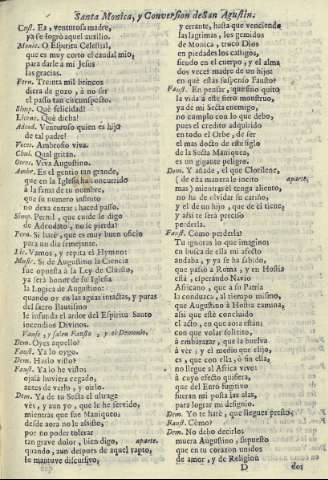 Santa Monica, y Conversion de San Agustin.
Cust. Ea, venturosa madre,
ya se logró aquel auxilio.
Monic. O Espiritu Celestial,
que es muy corto el caudal mio,
para darle a mi Jesus
las gracias.
Perv. Treinta mil brincos
diera de gozo, à no ser
el passo tan circunspecto.
Simp. Què felicidad!
Licen. Què dicha!
Adeod. Venturoso quien es hijo
de tal padre!
Vnos. Ambrosio viva.
Chul. Qual gritan.
Otros. Viva Agustino.
Ambr. Es el gentio tan grande,
que en la Iglesia ha concurrido
à la fama de tu nombre,
que su numero infinito
no dexa entrar: haced passo.
Simp. Pernil, que cuide le digo
de Adeodato, no le pierda:
Pern. Si harè, que es muy buen oficio
para un dia semejante.
Lic. Vamos, y repita el Hymno:
Music. Si de Augustino la Ciencia
fue opuesta à la Ley de Christo,
ya serà honor de su Iglesia
la Logica de Agustino:
quando oy en las aguas intactas, y puras
del sacro Bautismo
le infunda el ardor del Espiritu Santo
incendios Divinos.
Vanse, y salen Fausto, y el Demonio.
Dem. Oyes aquello?
Faust. Ya lo oygo.
Dem. Haslo visto?
Faust. Ya lo he visto:
ojalà huviera cegado,
antes de verlo, y oirlo.
Dem. Ya de tu Secta el ultrage
ves, y aun yo, que le he servido,
mientras que fue Maniqueo,
desde aora no le assisto,
por no poder tolerar
tan grave dolor, bien digo, aparte.
quando, aun despues de aquel rapto,
le mantuve discursivo,
y errante, hasta que venciendo
las lagrimas, los gemidos
de Monica, truxo Dios
en piedades los castigos,
siendo en el cuerpo, y el alma
dos veces madre de un hijo:
en què estàs suspenso Fausto?
Faust. En pensar, que sino quito
la vida à este fiero monstruo,
ya de mi Secta enemigo,
no cumplo con lo que debo,
pues el credito adquirido
en todo el Orbe, de ser
el mas docto de este siglo
de la Secta Maniquea,
es un gigante peligro.
Dem. Y añade, el que Clorilene,
(de esta manera le incito aparte.
mas) mientras el tenga aliento,
no ha de olvidar su cariño,
y el de un hijo, que de èl tiene;
y assi te serà preciso
perderla.
Faust. Como perderla?
Tu ignoras lo que imagino:
en busca de ella mi afecto
andaba, y ya se ha sabido,
que passò à Roma, y en Hostia
està, esperando Navio
Africano, que à su Patria
la conduzca, al tiempo mismo,
que Augustino à Hostia camina,
assi que estè concluìdo
el acto, en que aora estàn:
con que volar solicito,
à embarazar, que la buelva
à vèr; y el medio que elijo,
es, que con ella, ò sin ella,
no llegue al Africa vivo:
à cuyo efecto quisiera,
que del Euro fugitivo
fueran mi posta las alas,
para lograr mi designio.
Dem. Yo te harè, que llegues presto,
Faust. Còmo?
Dem. No debo decirlo:
muera Augustino, supuesto
que en tu corazon unidos
de amor, y de Religion
D dos